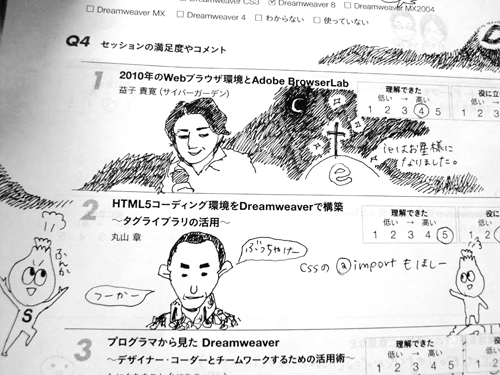 Dreamweaver CS3
Dreamweaver 8
Dreamweaver MX2004
Dreamweaver MX
Dreamweaver 4
わからない
使っていない
Q4 セッションの満足度やコメント
1 2010年のWebブラウザ環境とAdobe BrowserLab
益子 貴寛(サイバーガーデン)
理解できた
役に立
低い → 高い
低い
1 2 3 4 5
1 2
C
e
ieはお星様に
なりました。
2 HTML5コーディング環境をDreamweaverで構築
〜タグライブラリの活用〜
丸山 章
理解できた
役に
低い → 高い
低い
1 2 3 4 5
1
ぶっちゃけー
つーかー
cssの @importもほしー
S
3 プログラマから見た Dreamweaver
〜デザイナー・コーダーとチームワークするための活用術〜
理解できた
低い → 高い
1 2 3 4 5